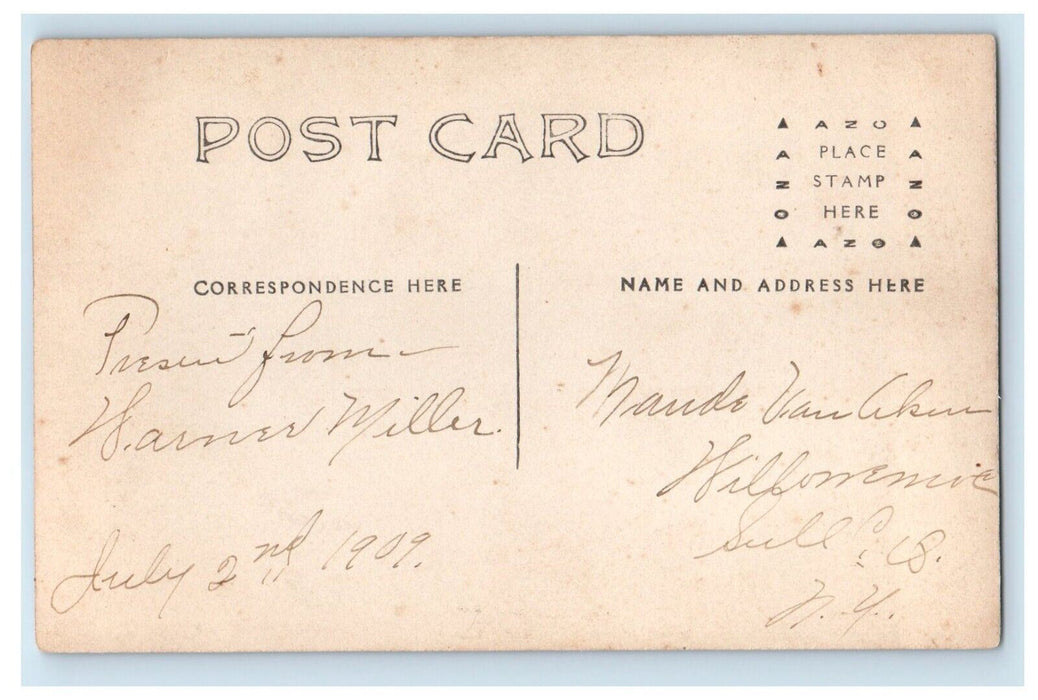 POST CARD
AZO
PLACE
STAMP
HERE
AZO
CORRESPONDENCE HERE
NAME AND ADDRESS HERE
Present from
Warner Miller.
July 2nd 1909.
Maude Van Aken
Willowemoc
Sull Co.
N.Y.